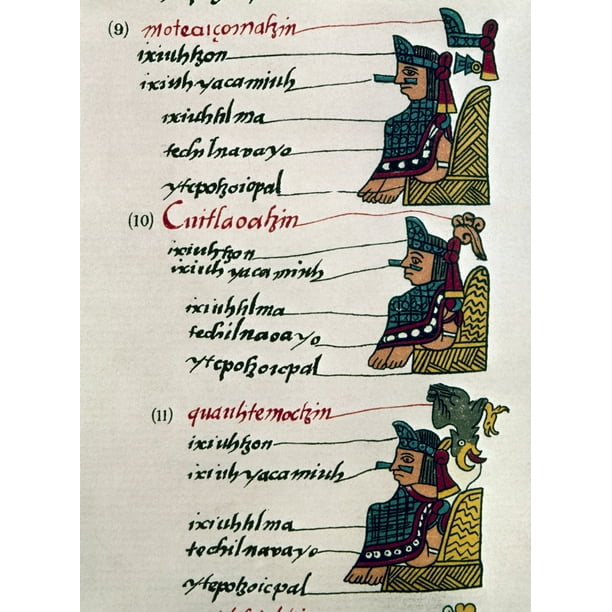 (9) moteucçomatzin
ixiuhtzon
ixiuh yacamiuh
ixiuhtilma
techilnavayo
ytepotzoicpal
(10) Cuitlaoatzin
ixiuhtzon
ixiuh yacamiuh
ixiuhtilma
techilnaoayo
ytepotzoicpal
(11) quauhtemoctzin
ixiuhtzon
ixiuh yacamiuh
ixiuhtilma
techilnavayo
ytepotzoicpal